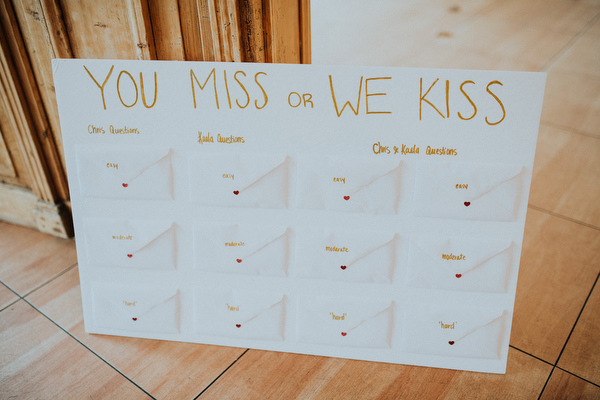 YOU MISS OR WE KISS
Chris Questions
Kaula Questions
Chris & Kaula Questions
easy
easy
easy
easy
moderate
moderate
moderate
moderate
"hard"
"hard"
"hard"
"hard"